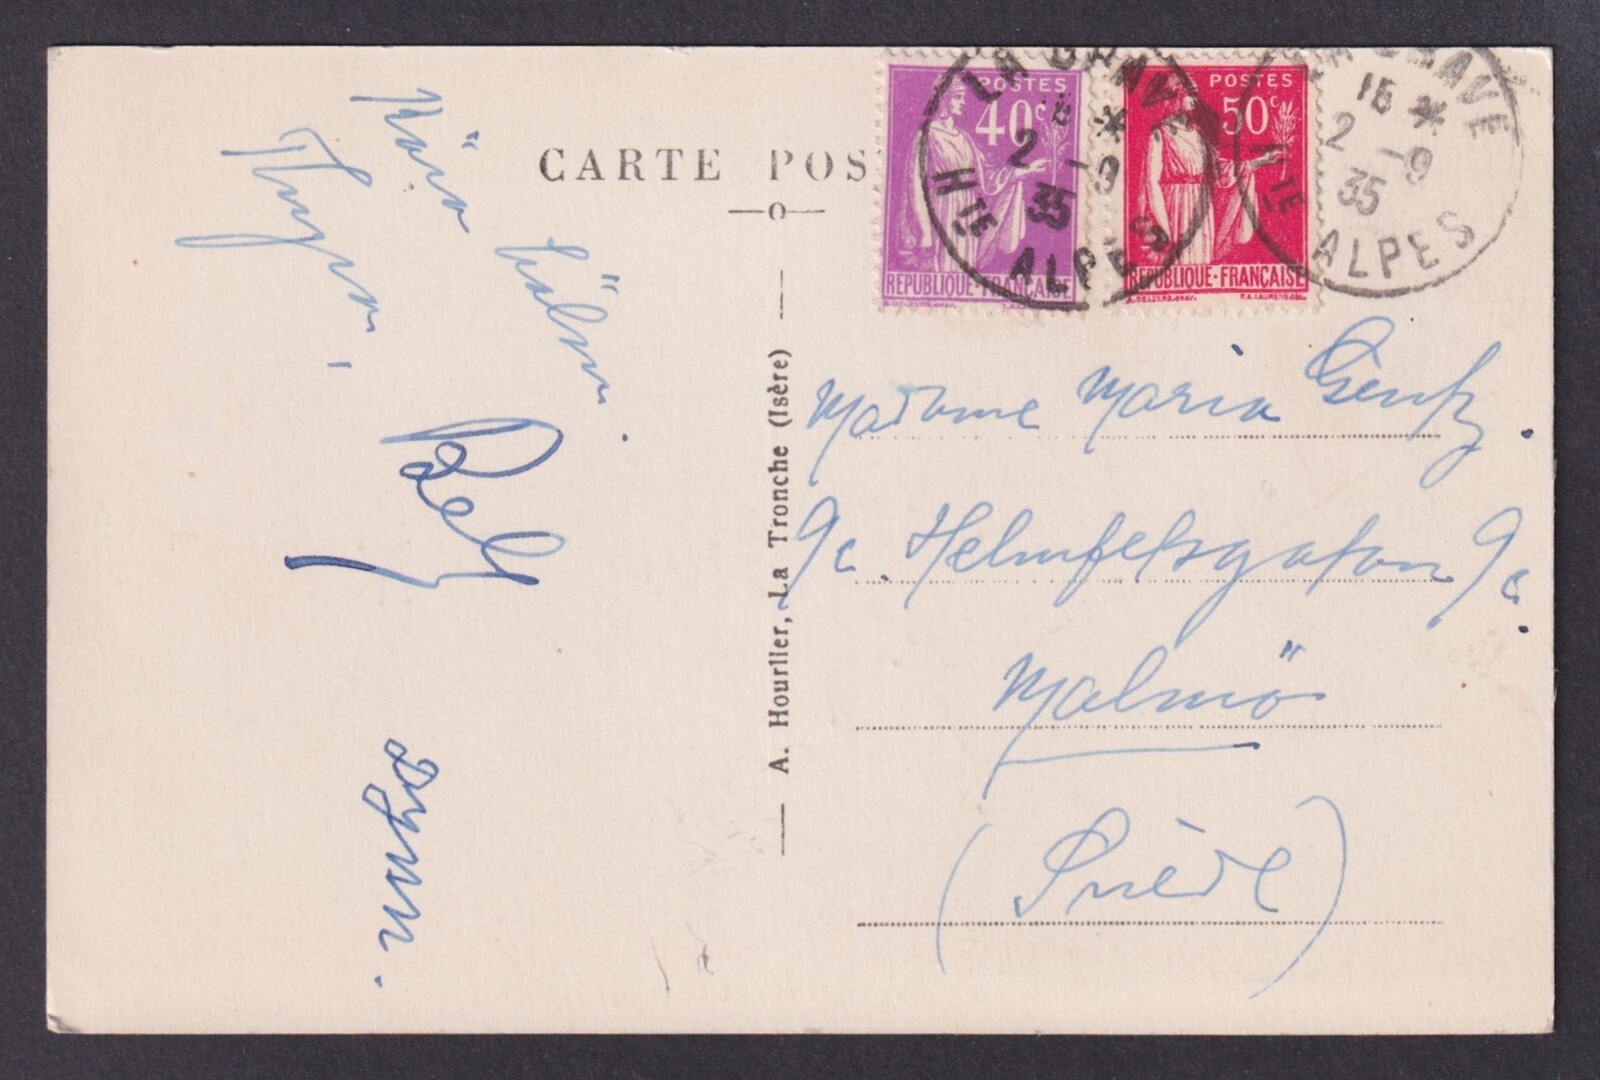 CARTE POS
POSTES
40c
REPUBLIQUE-FRANÇAISE
POSTES
50c
REPUBLIQUE-FRANÇAISE
LA GRAVE
15 *
2 -9
35
Hte ALPES
LA GRAVE
15 *
2 -9
35
Hte ALPES
A. Hourlier, La Tronche (Isère)
Kära
hälsn.
Madame Maria
9c. Helmfeltsgatan 9c.
Malmö
(Suède)